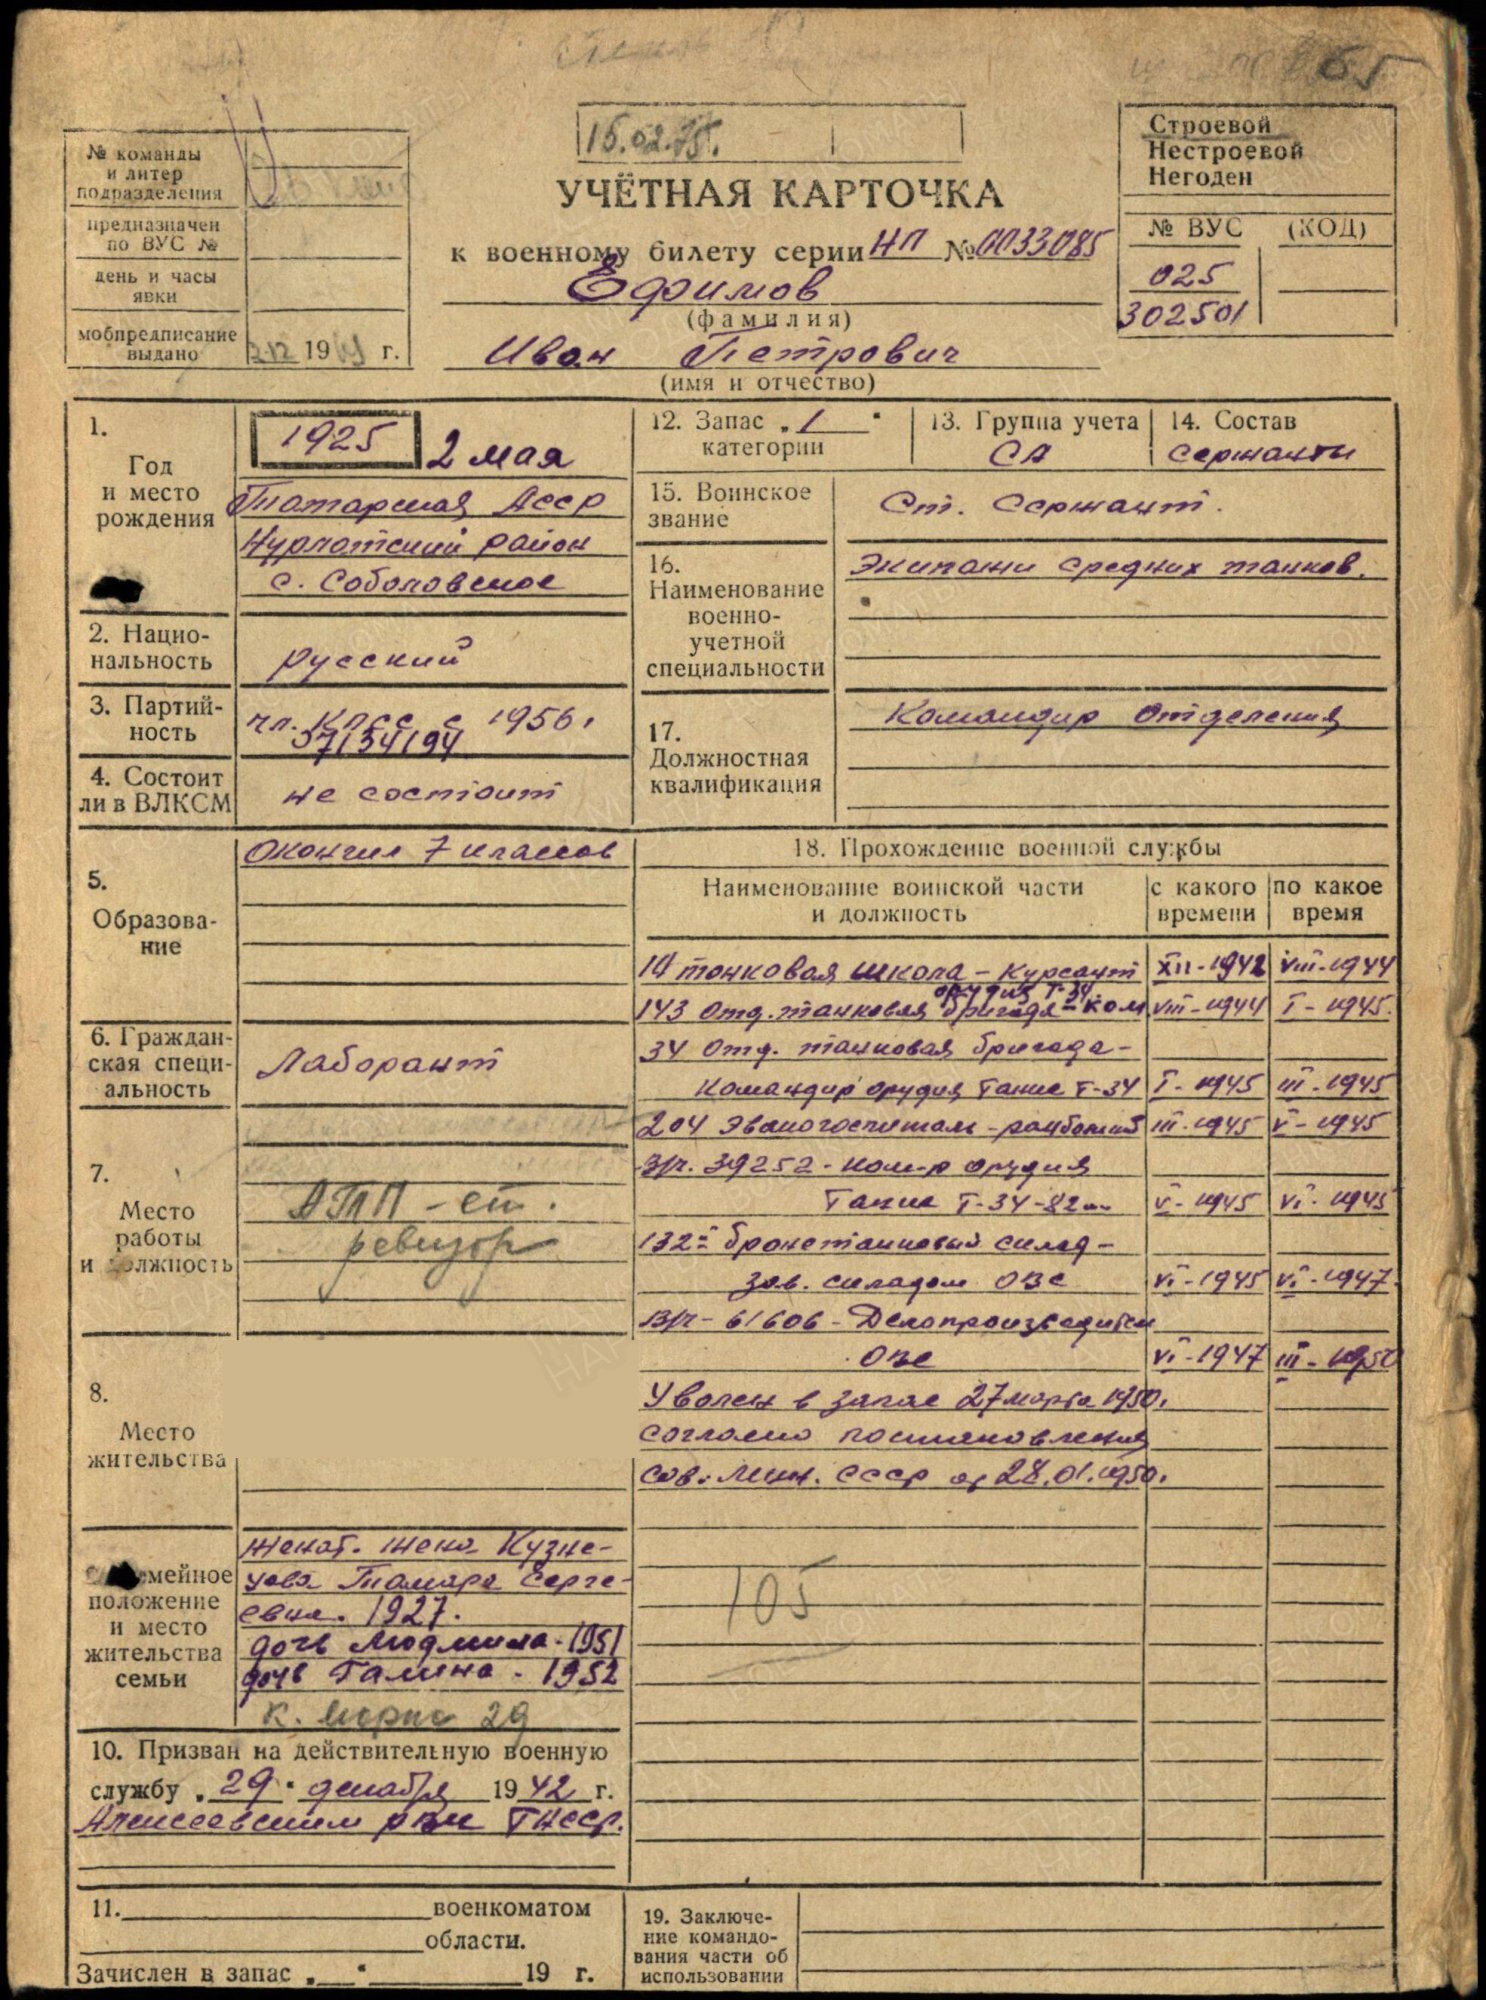 65
15.02.75.
№ команды
и литер
подразделения
предназначен
по ВУС №
день и часы
явки
мобпредписание
выдано
19 г.
УЧЁТНАЯ КАРТОЧКА
к военному билету серии НП № 0033085
Ефимов
(фамилия)
Иван Петрович
(имя и отчество)
Строевой
Нестроевой
Негоден
№ ВУС (КОД)
025
302501
1.
Год
и место
рождения
1925 2 мая
Татарская АССР
Нурлатский район
с. Соболовское
2. Нацио-
нальность
русский
3. Партий-
ность
чл. КПСС с 1956г
4. Состоит
ли в ВЛКСМ
не состоит
5.
Образова-
ние
Окончил 7 классов
6. Граждан-
ская специ-
альность
Лаборант
7.
Место
работы
и должность
АТП - ст.
ревизор
8.
Место
жительства
мейное
положение
и место
жительства
семьи
женат. жена Кузне-
цова Тамара Серге-
евна. 1927.
дочь Людмила - 1951
дочь Галина - 1952
К. Маркса 29
10. Призван на действительную военную
службу „29" декабря 1942 г.
Алексеевским РВК ТАССР.
11. военкоматом
области.
Зачислен в запас „ " 19 г.
12. Запас „1"
категории
13. Группа учета
СА
14. Состав
сержанты
15. Воинское
звание
Ст. Сержант.
16.
Наименование
военно-
учетной
специальности
Экипажи средних танков.
17.
Должностная
квалификация
Командир отделения
18. Прохождение военной службы
Наименование воинской части
и должность
с какого
времени
по какое
время
танковая школа - курсант XII-1942 VIII-1944
орудия Т-34
143 отд. танковая бригада - ком VIII-1944 I-1945.
34 отд. танковая бригада -
командир орудия танка Т-34 I-1945 III-1945
204 Эвакогоспиталь - ранбольной III-1945 V-1945
В/ч. 39252 - ком-р орудия
Танка Т-34-82мм V-1945 VI-1945
132й бронетанковый склад -
зав. складом ОВС VI-1945 VI-1947.
В/ч - 61606 - Делопроизводитель
ОВС VI-1947 III-1950
Уволен в запас 27 марта 1950г.
согласно постановления
Сов. Мин. СССР от 28.01.1950г.
105
19. Заключе-
ние командо-
вания части об
использовании